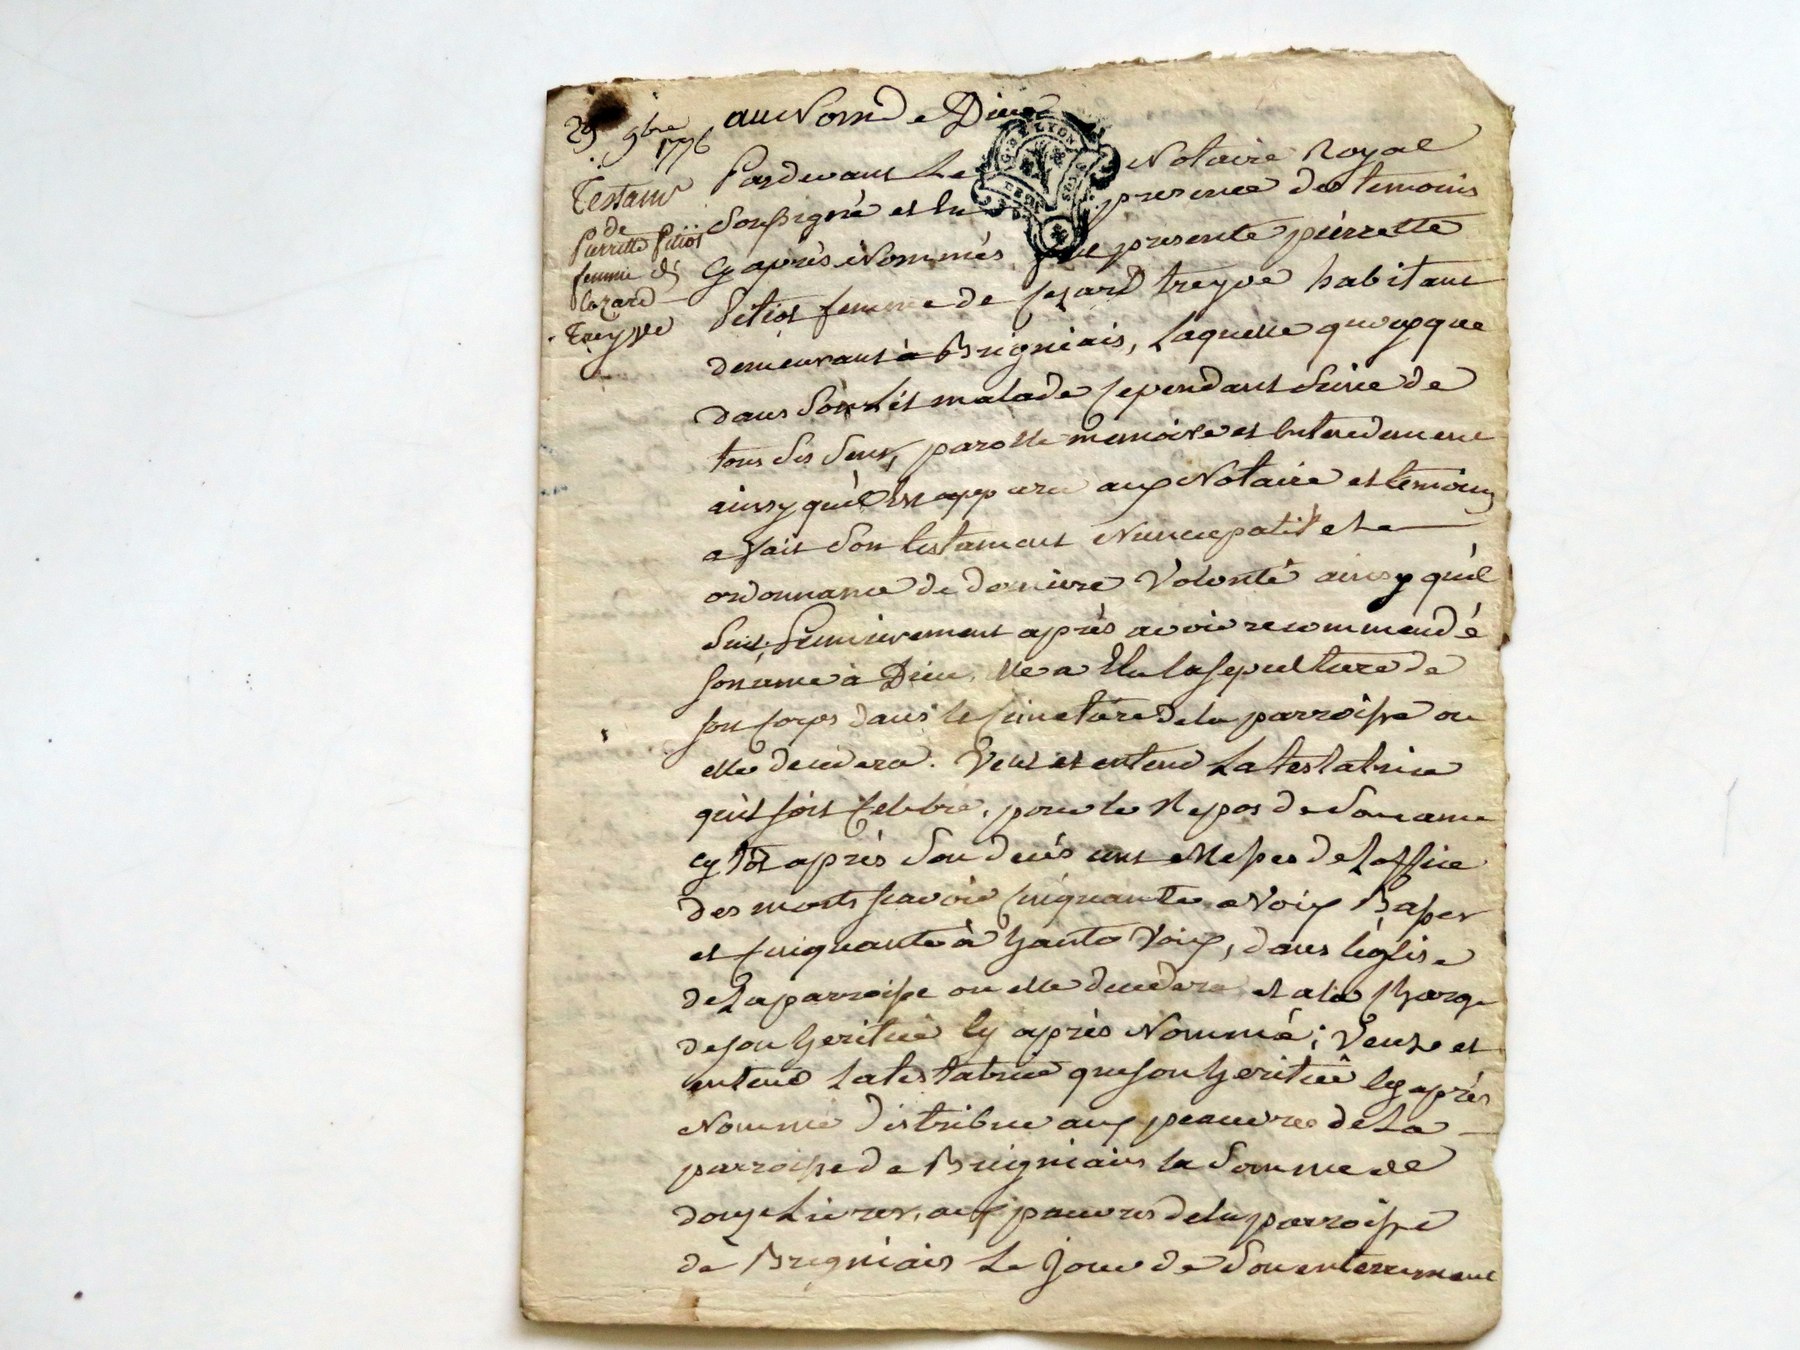 29 9bre
1776
Testamt
de
Pierrette Pitiot
femme de
Lazard
Treyve
au Nom de Dieu
G. DE LYON
DEUX SOLS
Pardevant Le Notaire Royal
Soussigné et En presence des temoins
cy après Nommés fut presente pierrette
Pitiot femme de Lazard treyve habitant
demeurant à Brigniais, Laquelle quoyque
dans Son Lit malade cependant Saine de
tous Ses Sens, parolle memoire et Entendement
ainsy quil Est apparu aux Notaire et temoins
a fait Son testament Nuncupatif et
ordonnance de derniere Volonté ainsy quil
Suit, Premierement après avoir recommandé
Son ame à Dieu, Elle a Elu la sepulture de
son corps dans le cimetiere de la parroisse ou
elle decedera. Veut et entend La testatrice
quil soit celebré, pour le Repos de Son ame
cytôt après Son decés cent Messes de L'office
des morts scavoir cinquante a Voix Basses
et cinquante à haute Voix, dans L'églize
de La parroisse ou elle decedera et a la charge
de son heritier cy après Nommé; Veut et
entend La testatrice que son heritier cy après
Nommé distribue aux peauvres de La
parroisse de Brigniais la Somme de
douze Livres, aux pauvres de la parroisse
de Brigniais Le jour de Son enterrement